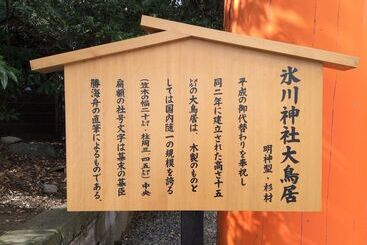 氷川神社大鳥居
明神型・杉材
平成の御代替わりを奉祝し
同二年に建立された高さ十五
の大鳥居は、木製のものと
しては国内随一の規模を誇る
(笠木の幅二十・柱間三四五)中央
扁額の社号文字は幕末の幕臣
勝海舟の直筆によるものである。